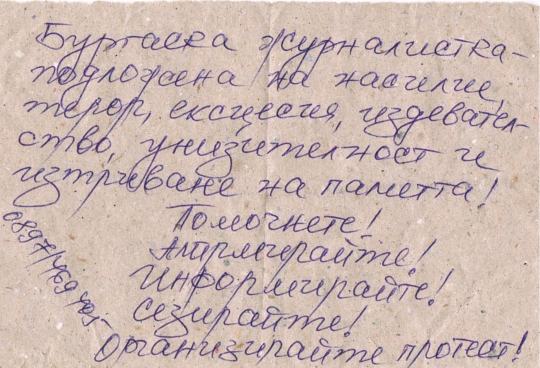 Бургаска журналистка-
подложена на насилие,
терор, ексцесия, издевател-
ство, унизителност и
изтриване на паметта!
Помогнете!
Алармирайте!
Информирайте!
Сезирайте!
Организирайте протест!
0897/469 405